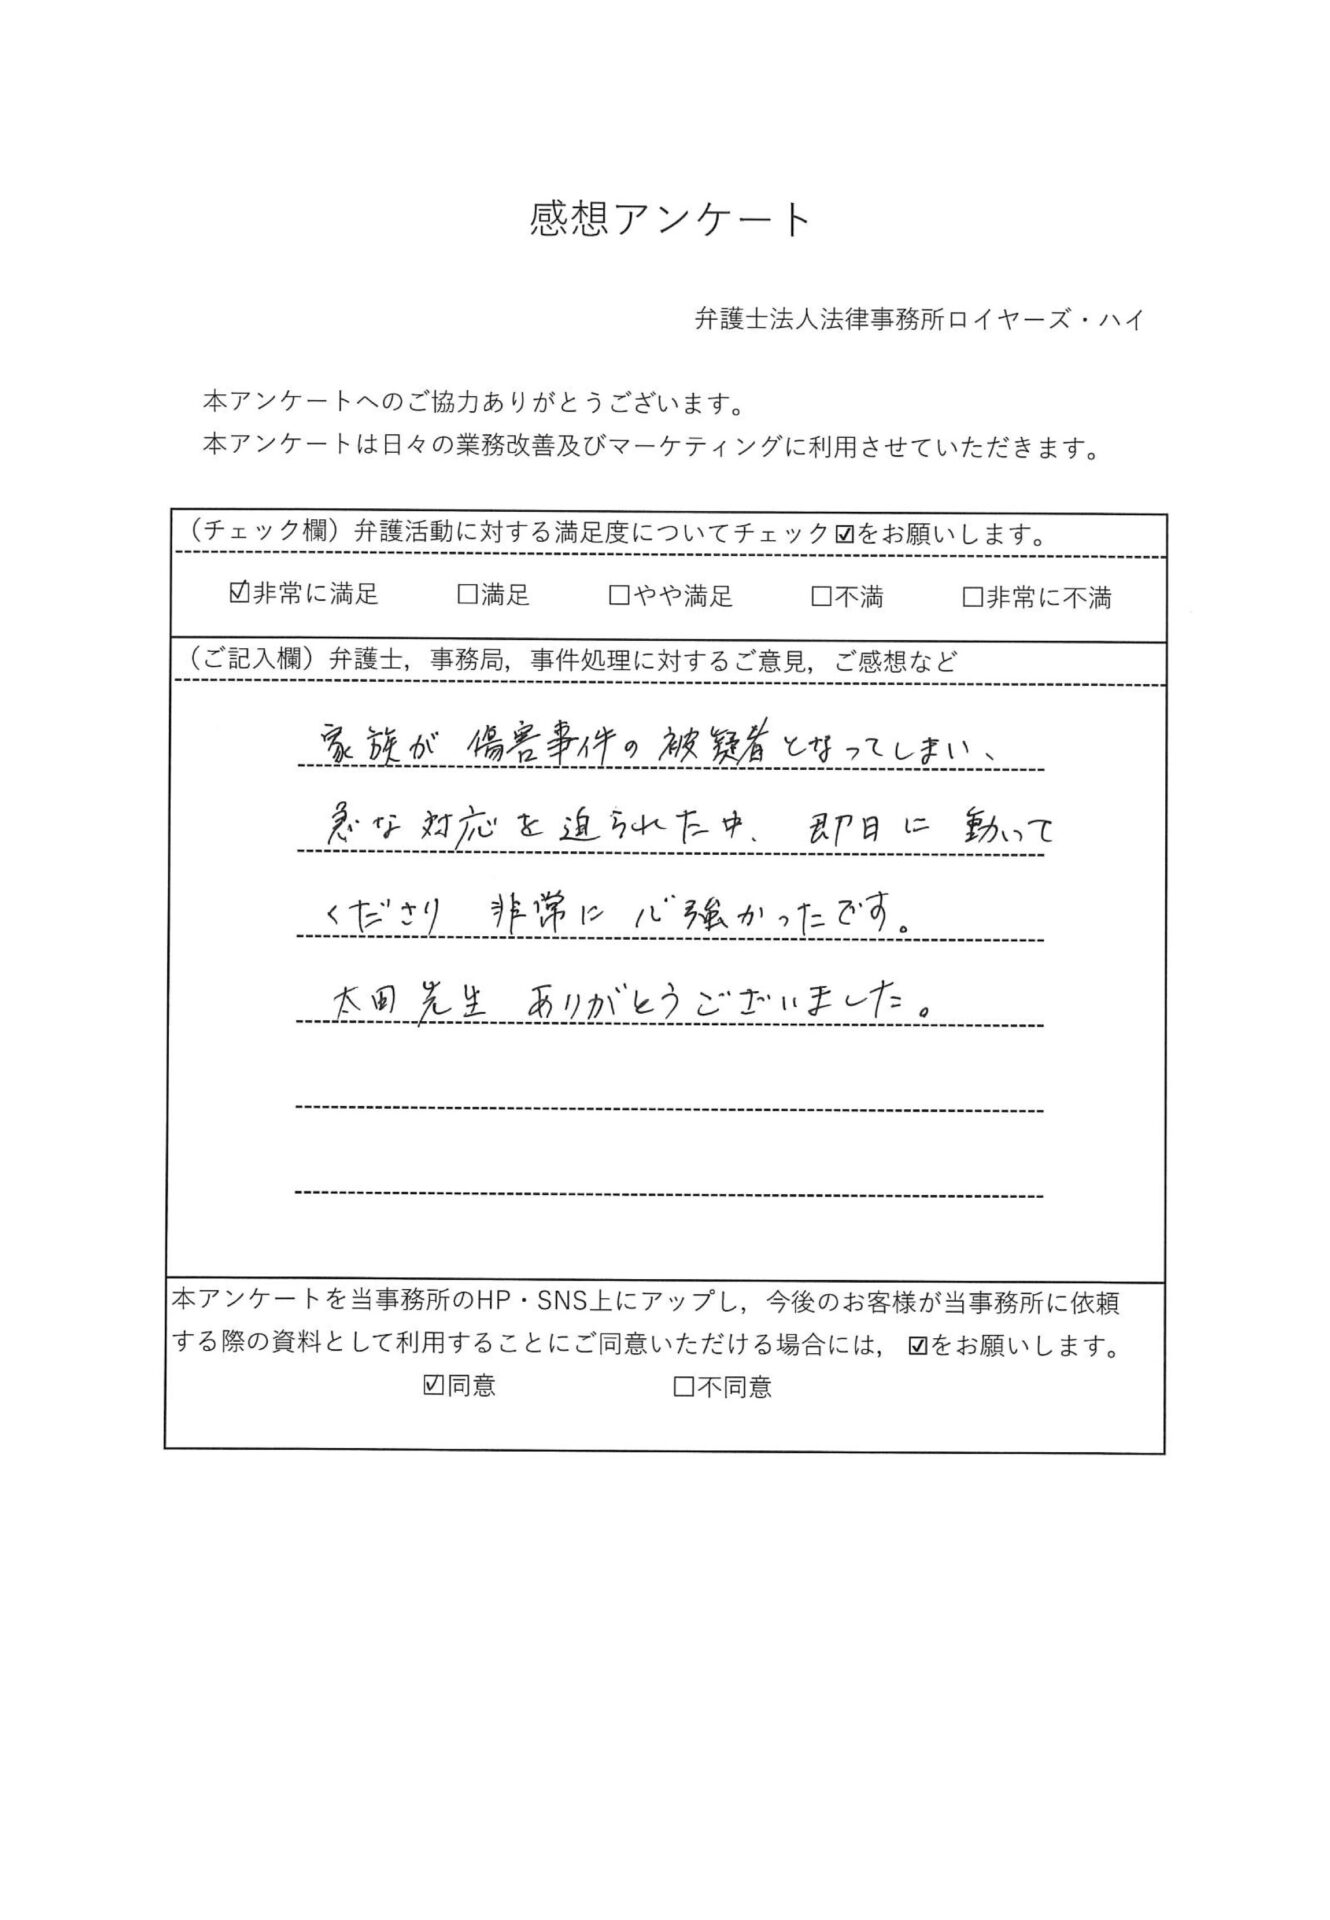 感想アンケート
弁護士法人法律事務所ロイヤーズ・ハイ
本アンケートへのご協力ありがとうございます。
本アンケートは日々の業務改善及びマーケティングに利用させていただきます。
（チェック欄）弁護活動に対する満足度についてチェック☑をお願いします。
☑非常に満足 □満足 □やや満足 □不満 □非常に不満
（ご記入欄）弁護士，事務局，事件処理に対するご意見，ご感想など
家族が 傷害事件の被疑者となってしまい、
急な対応を迫られた中、即日に動いて
くださり 非常に心強かったです。
太田先生 ありがとうございました。
本アンケートを当事務所のHP・SNS上にアップし，今後のお客様が当事務所に依頼
する際の資料として利用することにご同意いただける場合には，☑をお願いします。
☑同意 □不同意